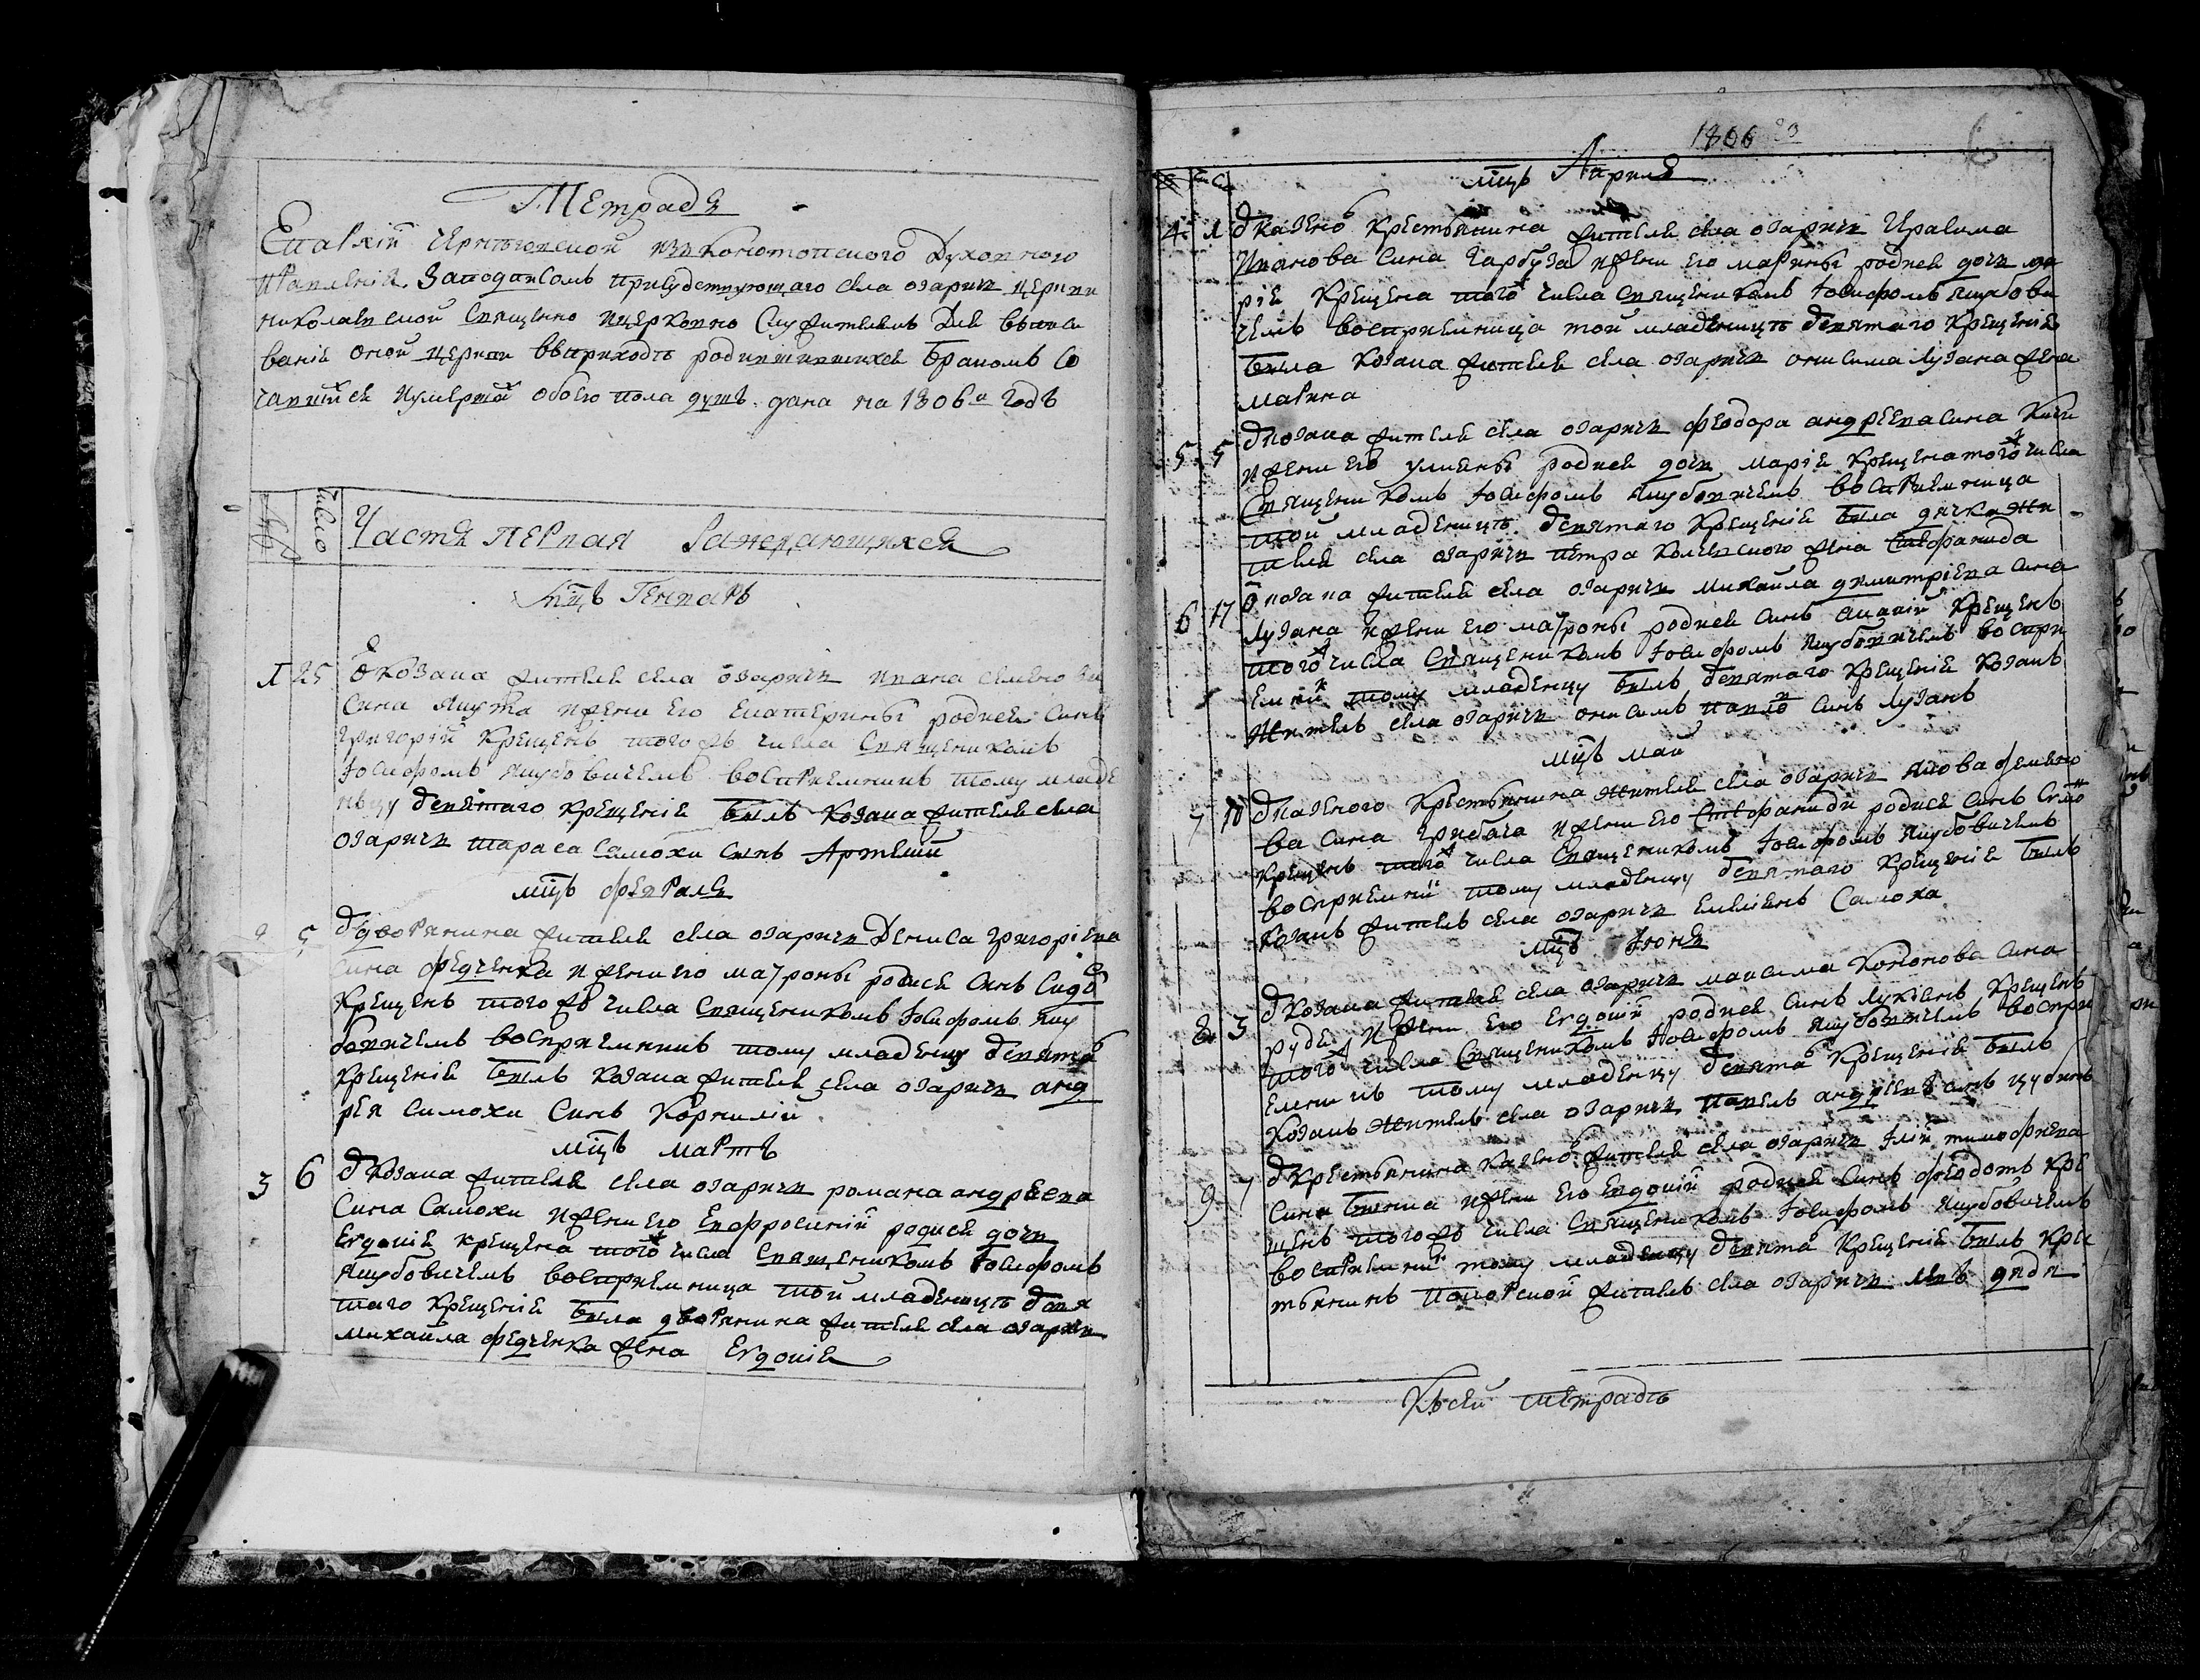 Тетрадь
Епархіи Черниговской изъ Конотопского Духовного
Правленія Заподписомъ присудствующаго села озаричъ церкви
николаевской Священно ицерковно Служителемъ Для вписи
ванія оной церкви въприходѣ родившихся Бракомъ Со
чавшихся иумершихъ обоего пола душъ дана на 1806й годъ
число
Часть Первая Раждающихся
Мцъ Генваръ
1 25 У козака жителя села озаричъ ивана семено
Сина Якута ижени его екатерины родися Синъ
Григорій крещенъ того жъ числа Священикомъ
Іосифомъ якубовичемъ воспріемникъ тому младе
нцу святаго крещенія Былъ козака жителя села
озаричъ тараса Самохи синъ Артемій
мцъ февраля
2 5 У дворянина жителя села озаричъ Дениса григоріева
сина федченка ижени его матроны родися синъ Сидо
крещенъ того жъ числа Священикомъ Іосифомъ яку
бовичемъ воспріемникъ тому младенцу святаго
крещенія Былъ козака жителя села озаричъ анд
рея самохи Синъ Корнилій
мцъ мартъ
3 6 У козака жителя села озаричъ романа андреева
Сина Самохи ижени его Евфросиніи родися дочь
Евдокія крещена того ж числа Священикомъ Іосифомъ
якубовичемъ воспріемница той младеницѣ свя
таго крещенія Была дворянина жителя села озаричъ
михаила федченка жена Евдокія
1806
мцъ Априля
4 1 У казено крестьянина жителя села озаричъ Герасима
Иванова Сина Гарбуза ижени его марины родися дочь ма
рія крещена того ж числа Священикомъ Іосифомъ якубови
чемъ воспріемница той младеницѣ святаго крещенія
Была козака жителя села озаричъ онисима лузана жена
марина
5 5 У козака жителя села озаричъ феодора андреева сина
ижени его улияны родися дочь марія крещена того ж числа
Священикомъ Іосифомъ якубовичемъ воспріемница
той младеницѣ святаго крещенія Была дячка жи
теля села озаричъ петра жена Стефанида
6 17 У козака жителя села озаричъ михаила димитріева сина
лузана ижени его матроны родися синъ ананій крещенъ
того ж числа Священикомъ Іосифомъ якубовичемъ воспри
емник тому младенцу Былъ святаго крещенія козакъ
житель села озаричъ онисимъ павло синъ лузанъ
мцъ май
7 10 У казеного крестьянина жителя села озаричъ якова семено
ва сина грибача ижени его Стефаниди родися синъ Симо
крещенъ того ж числа Священикомъ Іосифомъ якубовичемъ
воспріемни тому младенцу святаго крещенія Былъ
козакъ житель села озаричъ емеліянъ Самоха
мцъ Іюня
8 3 У козака жителя села озаричъ максима кононова сина
руде ижени его Евдокіи родися синъ лукіянъ крещенъ
того ж числа Священикомъ Іосифомъ якубовичемъ воспри
емникъ тому младенцу святаго крещенія Былъ
козакъ житель села озаричъ павелъ андреевъ синъ
9 7 У крестьянина казено жителя села озаричъ Іліи тимофиева
сина ижени его Евдокіи родися синъ феодотъ кре
щенъ того жъ числа Священикомъ Іосифомъ якубовичемъ
воспріемни тому младенцу святаго крещенія Былъ крес
тьянинъ житель села озаричъ
Късей тетрадѣ